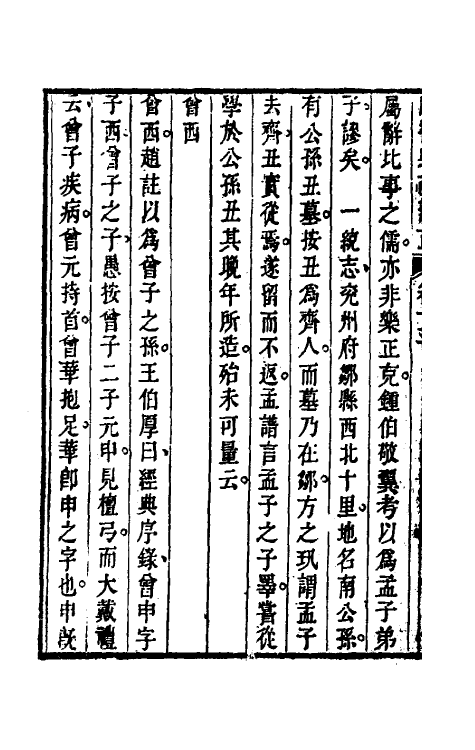 屬辭比事之儒。亦非樂正克。鍾伯敬翼考以爲孟子弟
子。謬矣。　一統志。兖州府鄒縣西北十里。地名南公孫。
有公孫丑墓。按丑爲齊人。而墓乃在鄒。方之玑謂孟子
去齊。丑實從焉。遂留而不返。孟譜言孟子之子睪。嘗從
學於公孫丑。其晚年所造。殆未可量云。
曾西
曾西。趙註以爲曾子之孫。王伯厚曰。經典序錄。曾申字
子西。曾子之子。愚按曾子二子元。申。見檀弓。而大戴禮
云。曾子疾病。曾元持首。曾華抱足。華卽申之字也。申旣